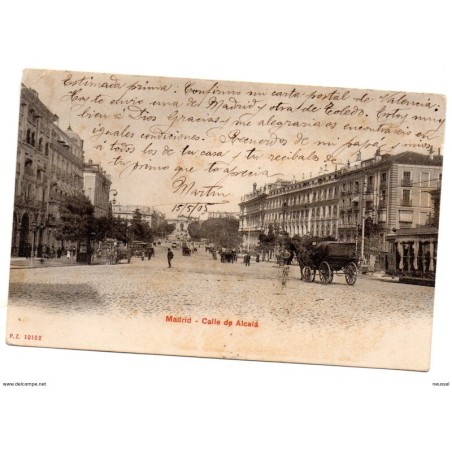 Estimada prima: Confirmo mi carta postal de Valencia.
Hoy te envio una del Madrid y otra de Toledo. Estoy muy
bien a Dios Gracias y me alegraria os encontrareis en
iguales condiciones. Recuerdos de mi papá y
á todos los de tu casa y tu recibelos de
tu primo que te aprecia
Martin
15/5/05
Madrid - Calle de Alcalá
P.Z. 10152
www.delcampe.net
neussal